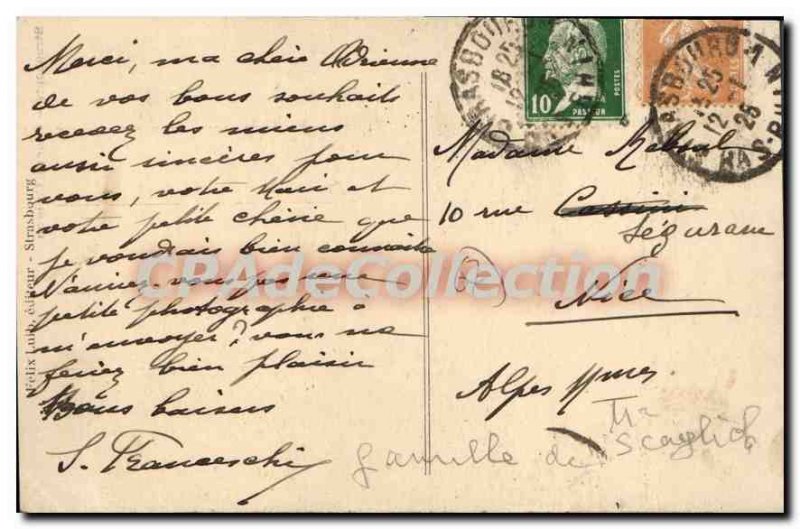 Merci, ma chère Adrienne
de vos bons souhaits
recevez les miens
aussi sincères pour
vous, votre Mari et
votre petite chérie que
je voudrais bien connaître
N'auriez-vous pas une
petite photographie à
m'envoyer? vous me
feriez bien plaisir
Bons baisers
S. Franceschi
Félix Luib, éditeur - Strasbourg
10
POSTES
PASTEUR
STRASBOURG
18 25
STRASBOURG
18 25
12 -1
26
Madame
10 rue Cassini
Ségurane
Nice
Alpes Mmes
famille de
CPAdeCollection